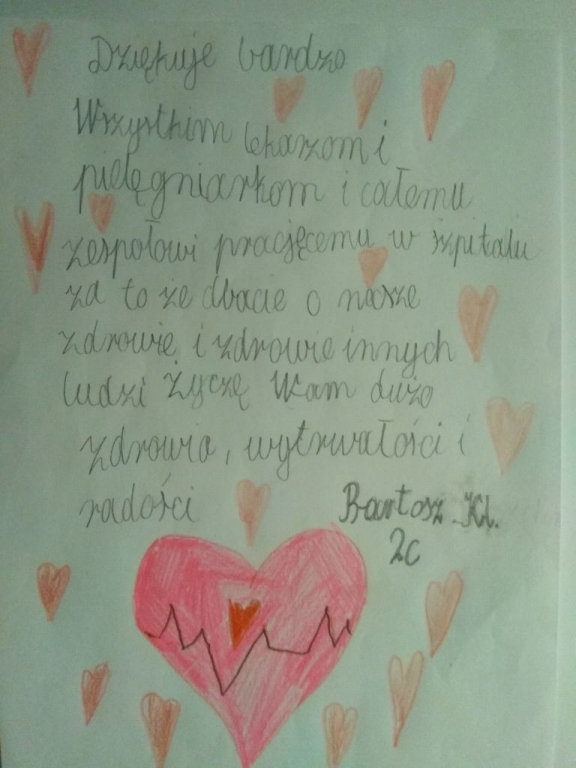 Dziękuje bardzo
Wszystkim lekarzom i
pielęgniarkom i całemu
zespołowi pracjęcemu w szpitalu
za to że dbacie o nasze
zdrowie i zdrowie innych
ludzi Życzę Wam dużo
zdrowia, wytrwałości i
radości
Bartosz Kl.
2c